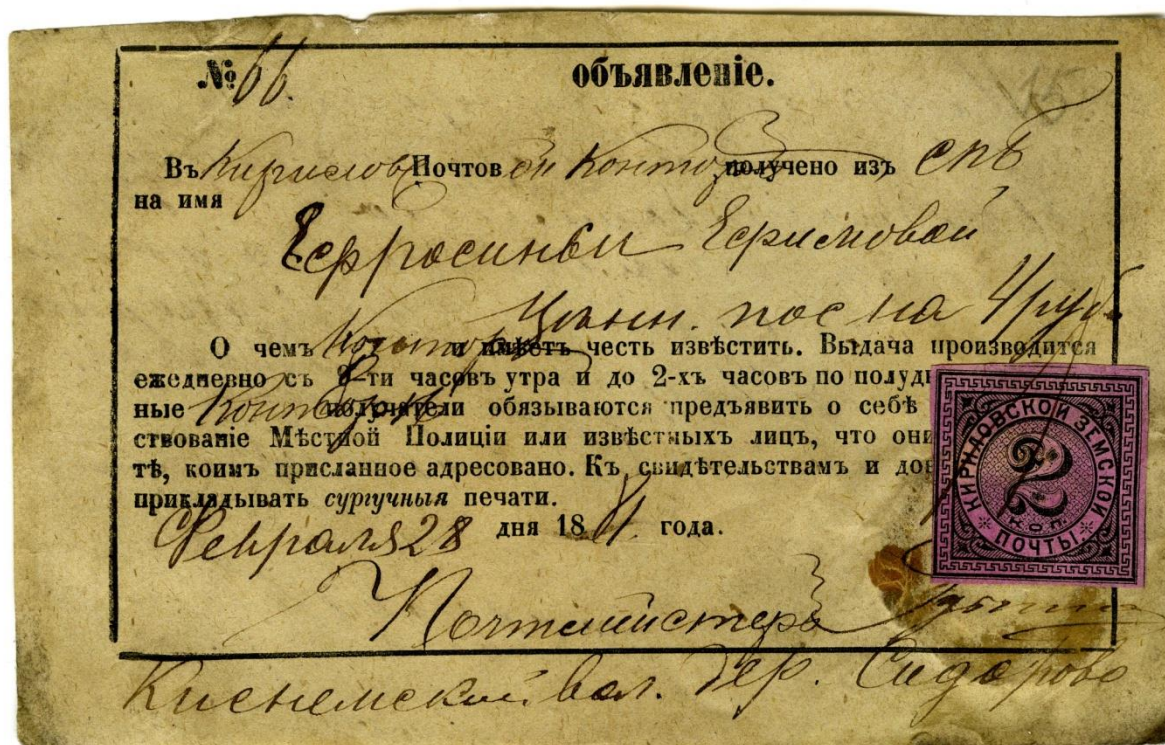 № 66. объявленіе.
Въ Кирилов Почтовой Контор получено изъ спб
на имя
Ефросиньи Ефимовой
Цѣнн. пос на 4 руб.
О чемъ Контора и имѣетъ честь извѣстить. Выдача производится
ежедневно съ 8-ти часовъ утра и до 2-хъ часовъ по полудн
ные получатели обязываются предъявить о себѣ
ствованіе Мѣстной Полиціи или извѣстныхъ лицъ, что они
тѣ, коимъ присланное адресовано. Къ свидѣтельствамъ и дов
прикладывать сургучныя печати.
Февраля 28 дня 18 года.
Почтмейстеръ
Киснемской вол. дер. Сидорово
КИРИЛОВСКОЙ ЗЕМСКОЙ
2
КОП.
ПОЧТЫ